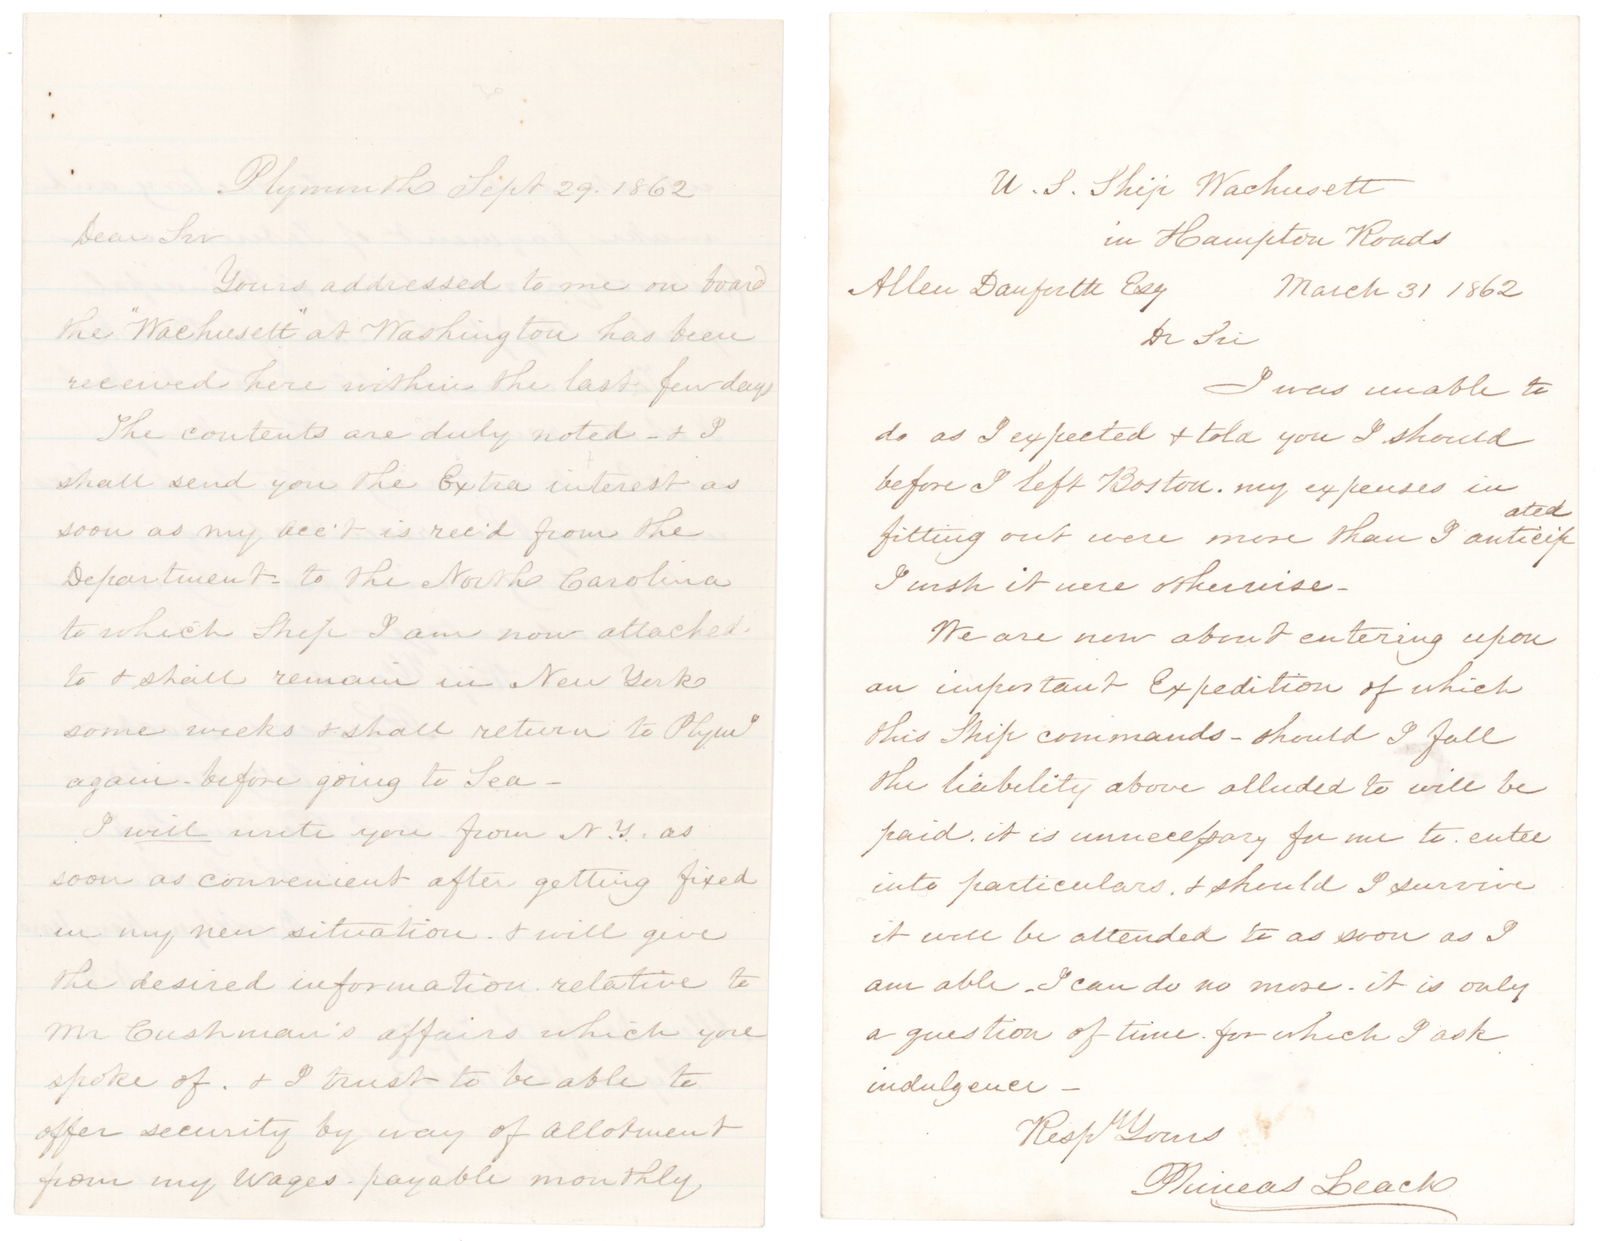 Plymouth Sept 29. 1862
Dear Sir
Yours addressed to me on board
the "Wachusett" at Washington has been
received here within the last few days
The contents are duly noted - & I
shall send you the Extra interest as
soon as my acc't is rec'd from the
Department - to the North Carolina
to which Ship I am now attached.
to & shall remain in New York
some weeks & shall return to Plymo
again - before going to Sea -
I will write you from N.Y. as
soon as convenient after getting fixed
in my new situation. & will give
the desired information. relative to
Mr Cushman's affairs which you
spoke of. & I trust to be able to
offer security by way of allotment
from my wages - payable monthly
U. S. Ship Wachusett
in Hampton Roads
Allen Danforth Esq March 31 1862
Dr Sir
I was unable to
do as I expected & told you I should
before I left Boston. my expenses in
fitting out were more than I anticipated
I wish it were otherwise -
We are now about entering upon
an important Expedition of which
this Ship commands - should I fall
the liability above alluded to will be
paid. it is unnecessary for me to enter
into particulars. & should I survive
it will be attended to as soon as I
am able. I can do no more. it is only
a question of time. for which I ask
indulgence -
Respy Yours
Phineas Leach